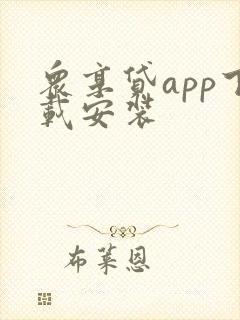 众享贷app下
载安装
布莱恩